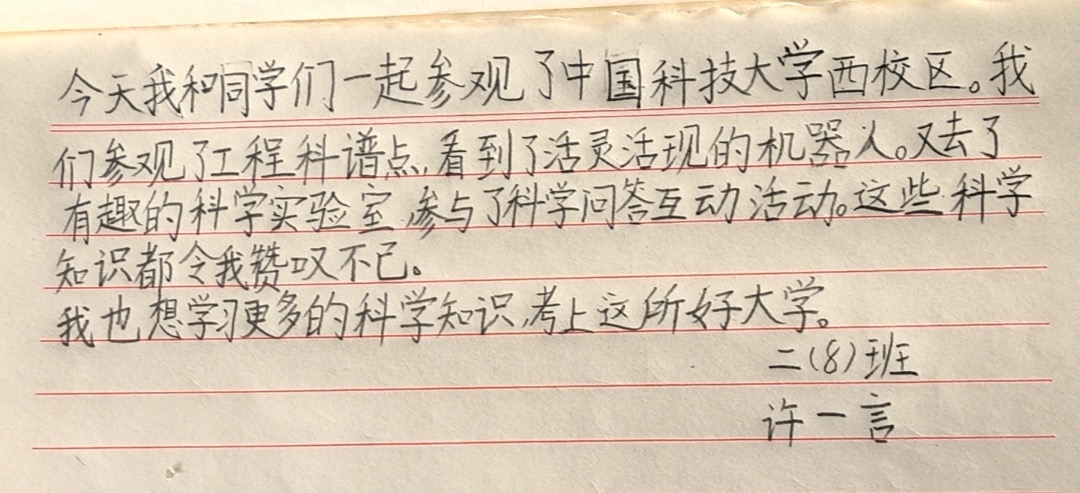 今天我和同学们一起参观了中国科技大学西校区。我
们参观了工程科谱点,看到了活灵活现的机器人。又去了
有趣的科学实验室,参与了科学问答互动活动。这些科学
知识都令我赞叹不已。
我也想学习更多的科学知识,考上这所好大学。
二(8)班
许一言